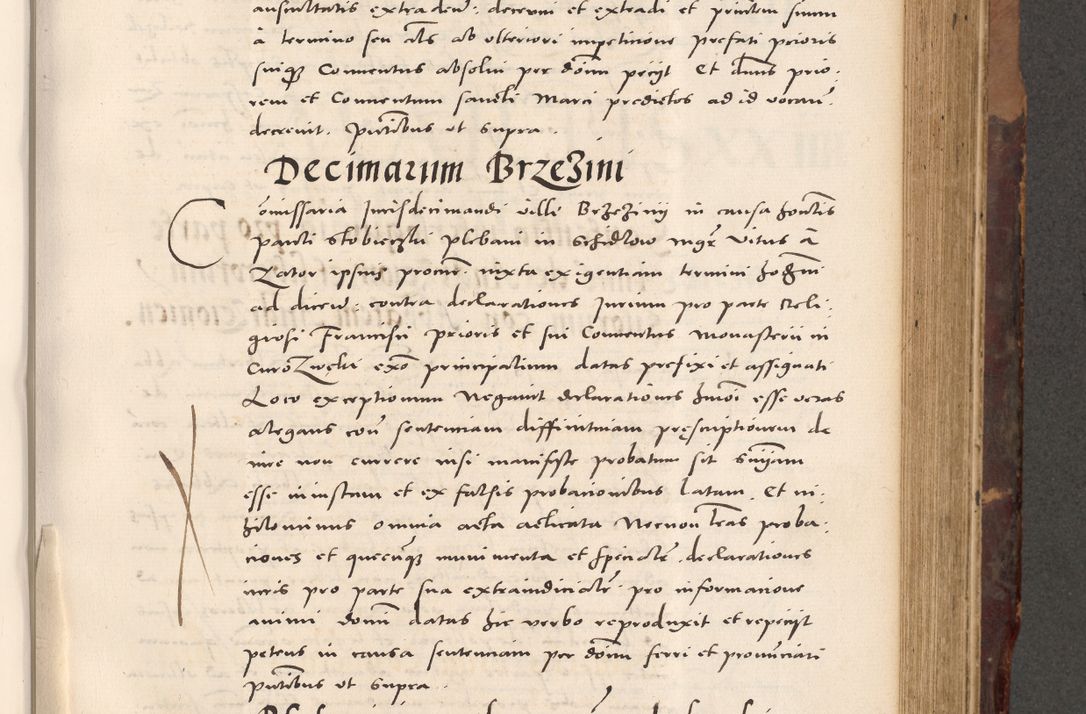 auscultatis extradend. decerni et extradi et pntem suum
à termino seu als ab ulteriori impeticione prefati prioris
suiqȝ Conuentus absolui per dōm petyt Et dnus prio.
rem et Conuentum sancti Marci predictos ad id vocan.
decreuit. Pntibus ut supra.
Decimarum Brzezini
Comissaria Jurisdecimandi ville Brzeziny in causa honlis
pauli slobieczki plebani in schidlow mgr vitus à
Zator ipsius procur. iuxta exigentiam termini hodierni
ad dicend. contra declarationes Jurium pro parte Reli.
giosi Francisci prioris et sui Conuentus monasterii in
CuroZweki exō principalium datas prefixi et assignati
Loco exceptionum Negauit declarationes hmōi esse veras
alegans coū sentenciam diffinitiuam pręscriptionem de
iure non currere nisi manifeste probatum sit Smiam
esse iniustam et ex falsis probacionibus latam. Et ni.
hilominus omnia acta actitata Necnon lras proba.
ciones et quecūqȝ munimenta et specialr declarationes
iuris pro parte sua extraiudicialr pro informacione
animi domi datas hic verbo reproduxit et repetyt
petens in causa sentenciam per dōm ferri et pronūciari
Pntibus ut Supra.